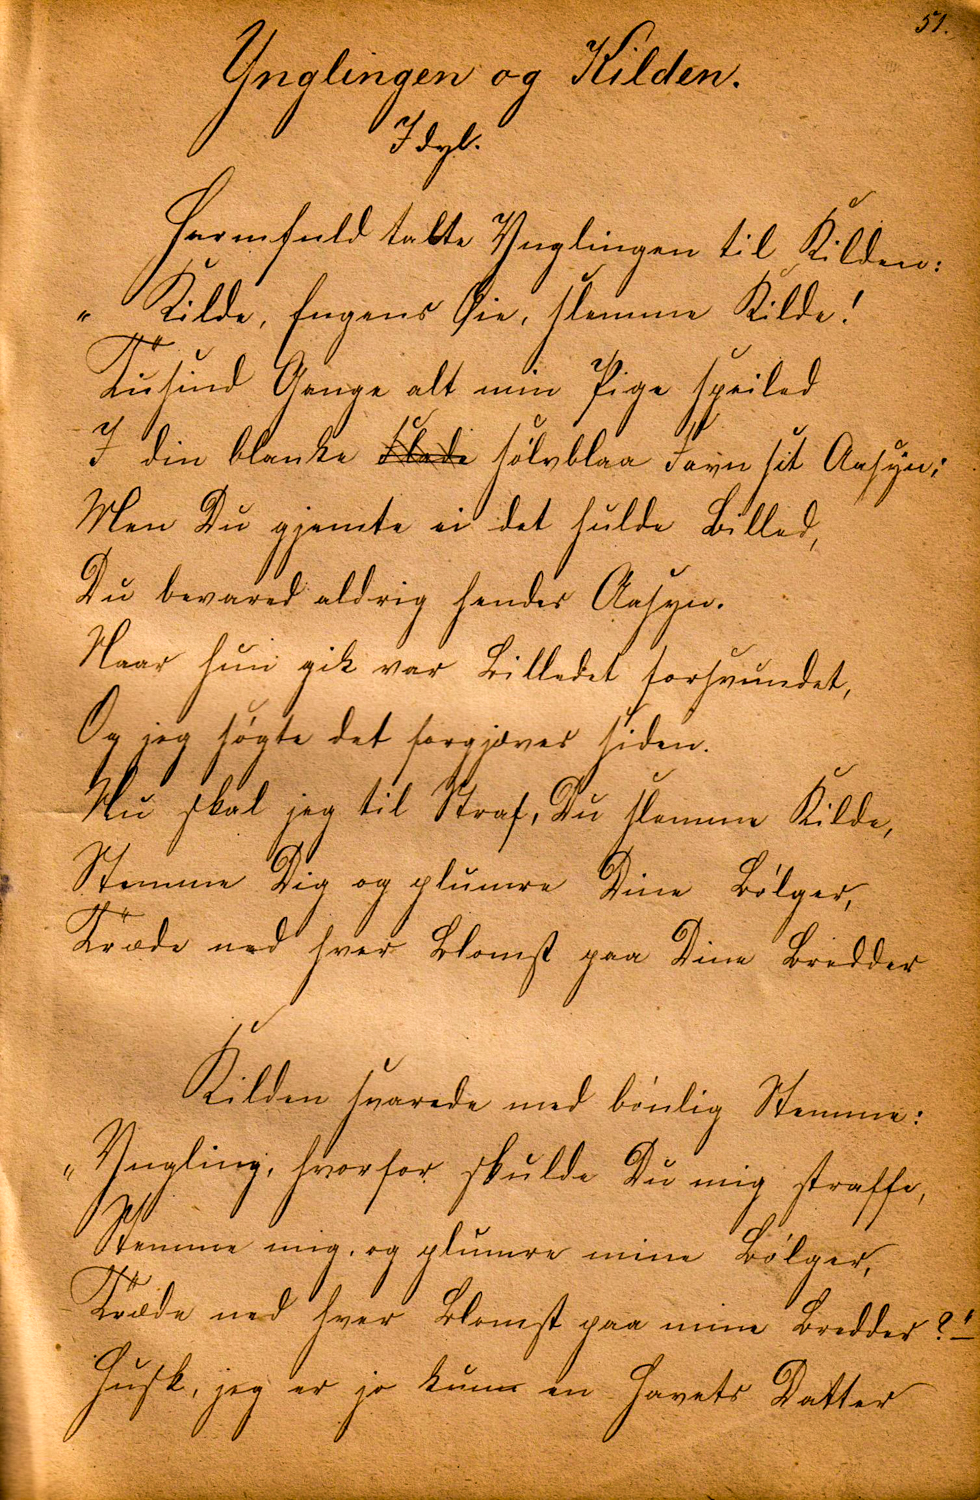 51.
Ynglingen og Kilden.
Idyl.
Harmfuld talte Ynglingen til Kilden:
„ Kilde, Engens Øie, slemme Kilde!
Tusind Gange alt min Pige speiled
I din blanke sølvblaa Favn sit Aasyn;
Men Du gjemte ei det hulde Billed,
Du bevared aldrig hendes Aasyn.
Naar hun gik var Billedet forsvundet,
Og jeg søgte det forgjæves siden.
Nu skal jeg til Straf, Du slemme Kilde,
Stemme Dig og plumre Dine Bølger,
Træde ned hver Blomst paa Dine Bredder
Kilden svarede med bønlig Stemme:
„Yngling, hvorfor skulde Du mig straffe,
Stemme mig, og plumre mine Bølger,
Træde ned hver Blomst paa mine Bredder?"
Husk, jeg er jo kun en Havets Datter